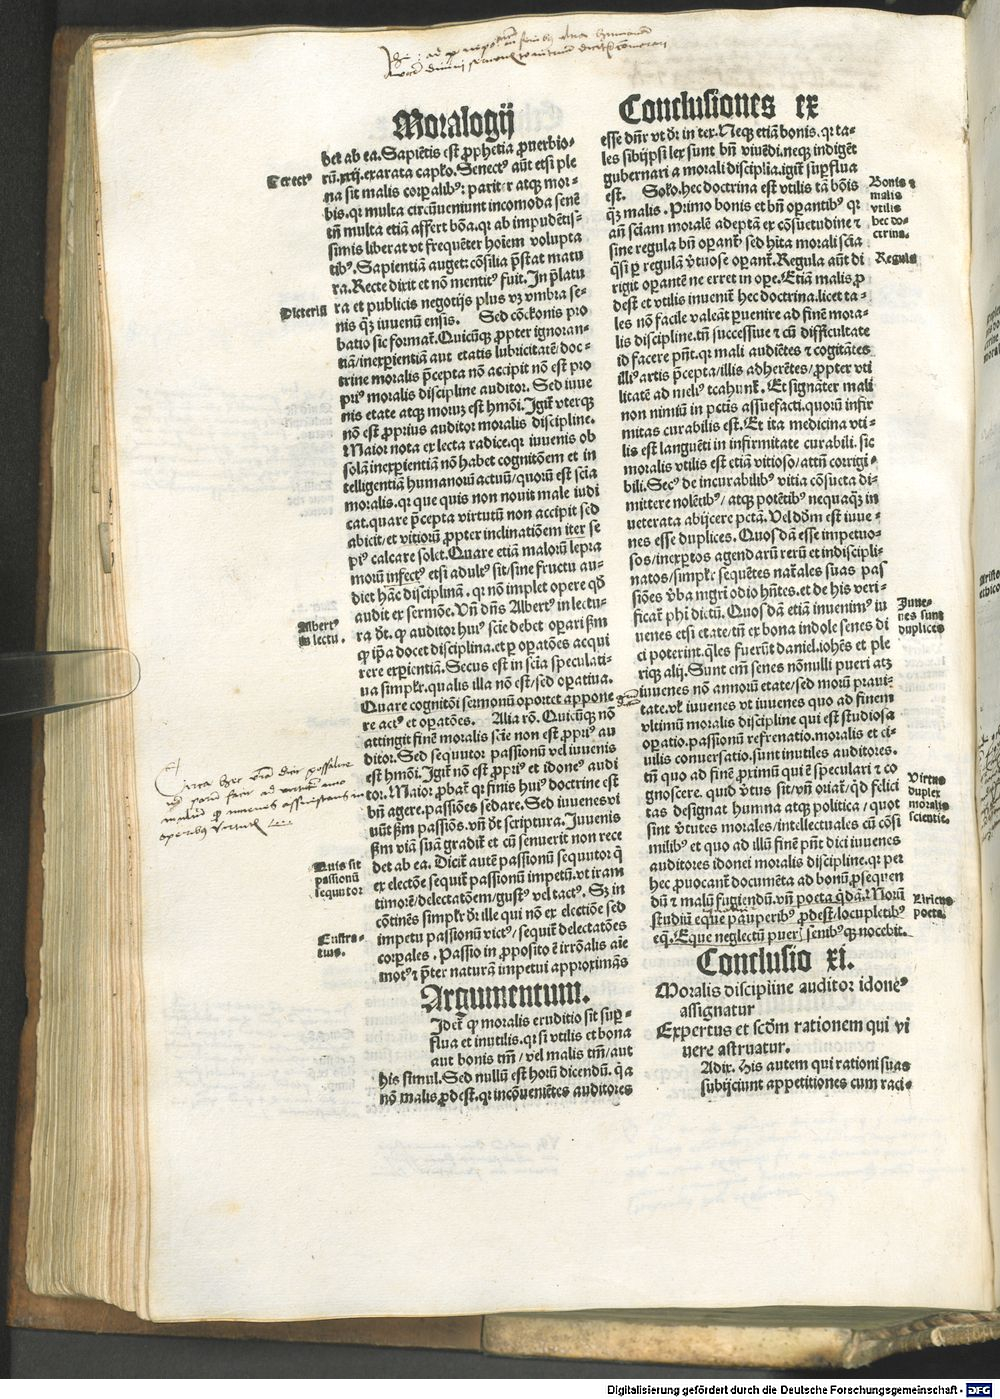 Moralogij
bet ab ea. Sapiẽtis est ꝓphetia ꝓuerbio-
rũ. xxij. exarata capło. Senectꝰ aũt etsi ple
na sit malis corꝑalibꝰ: pariter atqꝫ mor-
bis. qꝛ multa circũueniunt incomoda senẽ
tñ multa etiã affert bõa. qꝛ ab impudẽtis-
simis liberat vt frequẽter hoĩem volupta
tibꝰ. Sapientiã auget: cõsilia p̃stat matu
ra. Recte dixit et nõ mentitꝰ fuit. In p̃latu
ra et publicis negotijs plus vꝫ vmbra se-
nis qꝫ iuuenũ ensis. Sed cõckonis pro
batio sic format᷑. Quicũqꝫ ꝓpter ignoran-
tiã/inexꝑientiã aut etatis lubricitatẽ/doc-
trine moralis p̃cepta nõ accipit nõ est pro
priꝰ moralis discipline auditor. Sed iuue
nis etate atqꝫ moruꝫ est hmõi. Igit᷑ vterqꝫ
nõ est ꝓprius auditor moralis discipline.
Maior nota ex lecta radice. qꝛ iuuenis ob
solã inexꝑientiã nõ habet cognitõem et in
telligentiã humanorũ actuũ/quorũ est scia
moralis. qꝛ que quis non nouit male iudi
cat. quare p̃cepta virtutũ non accipit sed
abicit/et vitiorũ ꝓpter inclinatiõem iter se
piꝰ calcare solet. Quare etiã malorũ lepra
morũ infectꝰ etsi adultꝰ sit/sine fructu au-
diet hãc disciplinã. qꝛ nõ implet opere qd̃
audit ex sermõe. Vñ dñs Albertꝰ in lectu-
ra dt. ꝙ auditor huiꝰ scie debet oꝑari ẜm
ꝙ ip̃a docet disciplina. et ꝑ oꝑatões acqui
rere exꝑientiã. Secus est in scia speculati-
ua simplr. qualis illa nõ est/sed oꝑatiua.
Quare cognitõi sermonũ oportet appone
re actꝰ et oꝑatões. Alia rõ. Quicũqꝫ nõ
attingit finẽ moralis scie non est ꝓpriꝰ au
ditor. Sed sequutor passionũ vel iuuenis
est hmõi. Igit᷑ nõ est ꝓpriꝰ et idoneꝰ audi
tor. Maior ꝓbat᷑ qꝛ finis huiꝰ doctrine est
bñ agere. passiões sedare. Sed iuuenes vi
uũt ẜm passiõs. vñ dt scriptura. Iuuenis
ẜm viã suã gradit᷑ et cũ senuerit non rece
det ab ea. Dicit᷑ autẽ passionũ sequutor q̃
ex electõe sequit᷑ passionũ impetũ. vt iram
timorẽ/delectatõem/gustꝰ vel tactꝰ. Sꝫ in
cõtinẽs simplr dr ille qui nõ ex electiõe sed
impetu passionũ victꝰ/sequit᷑ delectatões
corꝑales. Passio in ꝓposito ẽ irrõalis aie
motꝰ et p̃ter naturã impetui approximãs
Argumentum.
Idet᷑ ꝙ moralis eruditio sit suꝑ-
flua et inutilis. qꝛ si vtilis et bona
aut bonis tm̃/vel malis tm̃/aut
his simul. Sed nullũ est horũ dicendũ. q̃ a
nõ malis ꝓdest. qꝛ incõueniẽtes auditores
Terẽtꝰ
Dicteriũ
Albertꝰ
in lectu.
Quis sit
passionũ
sequutor
Eustra-
tius.
Conclusiones ex
esse dñr vt dr in tex. Neqꝫ etiã bonis. qꝛ ta-
les sibijpsi lex sunt bñ viuẽdi. neqꝫ indigẽt
gubernari a morali disciplia. igit᷑ suꝑflua
est. Solo. hec doctrina est vtilis tã bõis
qꝫ malis. Primo bonis et bñ oꝑantibꝰ qꝛ
añ sciam moralẽ adeptã ex cõsuetudine et
sine regula bñ oꝑant᷑ sed hita morali scia
q̃si ꝑ regulã v̾tuose oꝑant᷑. Regula aũt di
rigit oꝑantẽ ne erret in oꝑe. Etiã malis ꝓ
dest et vtilis inuenit᷑ hec doctrina. licet ta-
les nõ facile valeãt ꝑuenire ad finẽ mora-
lis discipline. tñ successiue et cũ difficultate
id facere pñt. qꝛ mali audiẽtes et cogitãtes
illiꝰ artis p̃cepta/illis adherẽtes/ꝓpter vti
litatẽ ad meliꝰ trahunt᷑. Et signãter mali
non nimiũ in pctis assuefacti. quorũ infir
mitas curabilis est. Et ita medicina vti-
lis est languẽti in infirmitate curabili. sic
moralis vtilis est etiã vitioso/attñ corrigi-
bili. Secꝰ de incurabilibꝰ vitia cõsueta di-
mittere nolẽtibꝰ/atqꝫ potẽtibꝰ nequaqꝫ in
ueterata abijcere pctã. Vel dõm est iuue-
nes esse duplices. Quosdã esse impetuo-
sos/inexꝑtos agendarũ rerũ et indiscipli-
natos/simplr sequẽtes nat᷑ales suas pas
siões v̾ba mgri odio hñtes. et de his veri-
ficat᷑ phi dictũ. Quosdã etiã inuenimꝰ iu
uenes etsi etate/tñ ex bona indole senes di
ci poterint. q̃les fuerũt daniel. iohẽs et ple
riqꝫ alij. Sunt em̃ senes nõnulli pueri atqꝫ
iuuenes nõ annorũ etate/sed morũ praui-
tate. vl iuuenes vt iuuenes quo ad finem
vltimũ moralis discipline qui est studiosa
oꝑatio. passionũ refrenatio. moralis et ci-
uilis conuersatio. sunt inutiles auditores.
tñ quo ad finẽ ꝓximũ qui ẽ speculari et co
gnoscere. quid v̾tus sit/vñ oriat᷑/qd felici
tas designat humna atqꝫ politica/quot
sint v̾tutes morales/intellectuales cũ cõsi
milibꝰ et quo ad illũ finẽ pñt dici iuuenes
auditores idonei moralis discipline. qꝛ per
hec ꝓuocant᷑ documẽta ad bonũ ꝓsequen
dũ et malũ fugiendũ. vñ poeta q̃dã. Morũ
studiũ eque pauperibꝰ ꝓdest/locupletibꝰ
eqꝫ. Eque neglectũ puer senibꝰqꝫ nocebit.
Conclusio xi.
Moralis discipline auditor idoneꝰ
assignatur
Expertus et scdm rationem qui vi
uere astruatur.
Adir. His autem qui rationi suas
subijciunt appetitiones cum raci-
Bonis et
malis
vtilis
hec do-
ctrina.
Regula
Iuue-
nes sunt
duplices
Virtus
duplex
moralis
scientie.
Liricus
poeta.
Digitalisierung gefördert durch die Deutsche Forschungsgemeinschaft - DFG